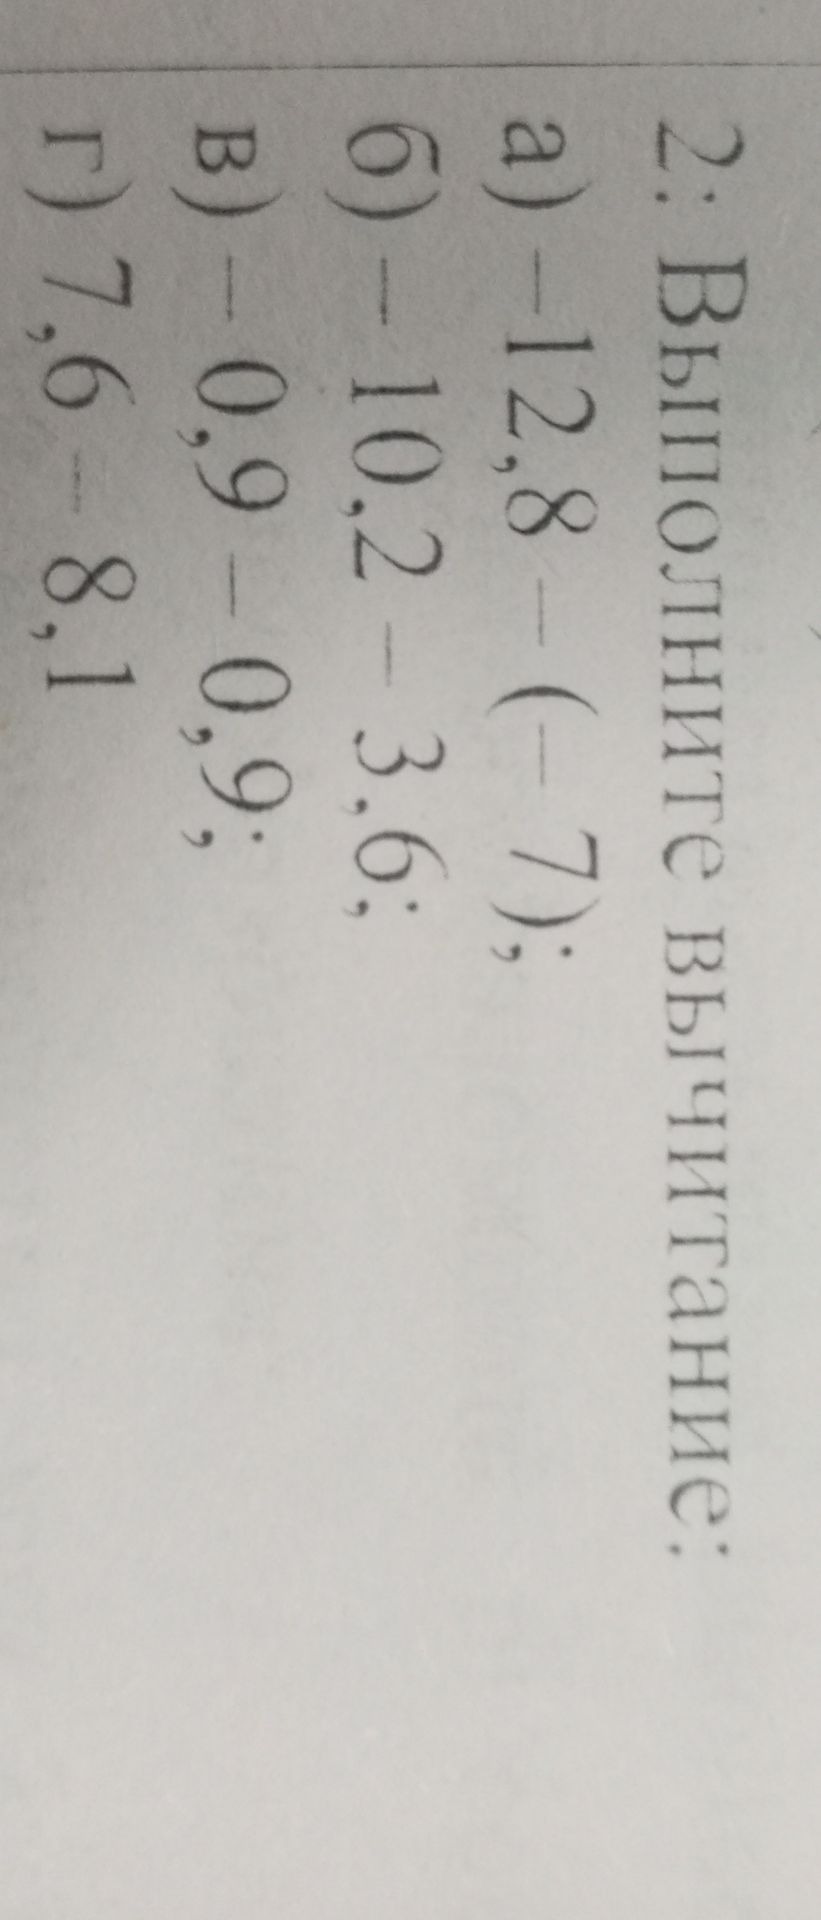 2: Выполните вычитание:
а) –12,8 – (– 7);
б) – 10,2 – 3,6;
в) – 0,9 – 0,9;
г) 7,6 – 8,1